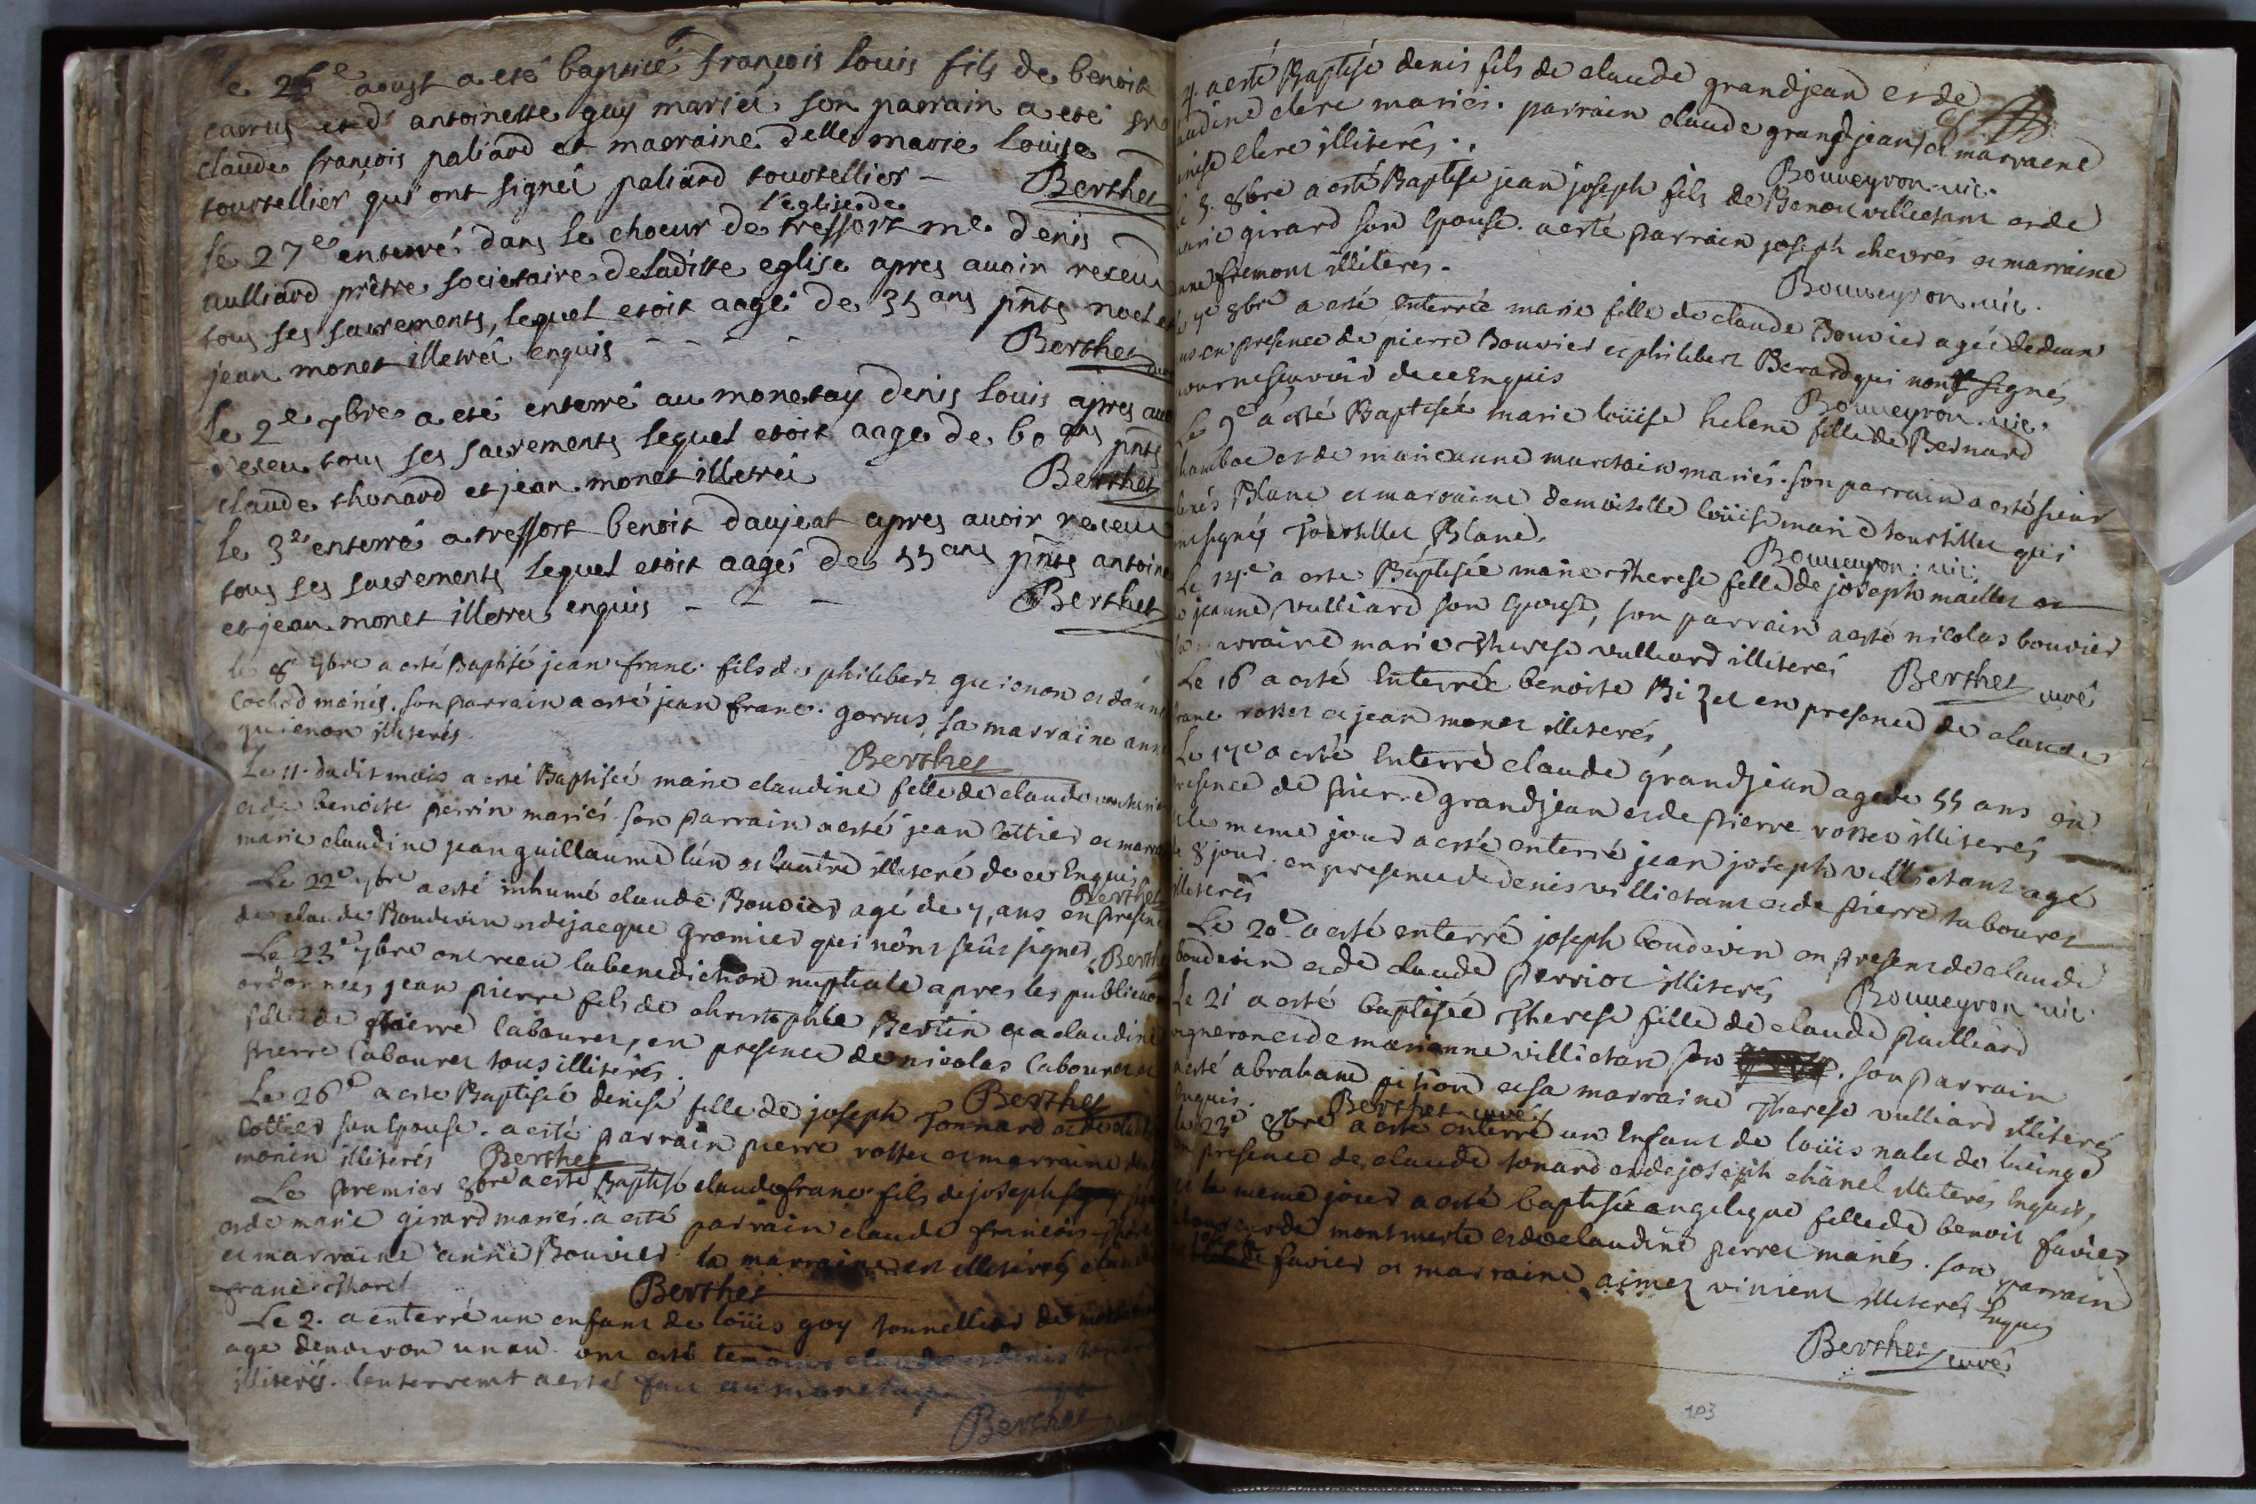 le 26e aoust a eté baptisé françois louis fils de benoit
carrus et d'antoinette guy mariéś son parrain a eté sr
claude françois paliard et marraine delle marie louise
tourtellier qui ont signéś paliard tourtellier –
Berthet
l'eglise de
le 27e enterré dans le choeur de tressort me denis
vulliard prêtre societaire de laditte eglise apres avoir receu
tous ses sacrements, lequel etoit aagé de 35 ans pnts noel et
jean monet illetréś enquis - - - -
Berthet
le 2e 7bre a eté enterré au monetay denis louis apres avoir
receu tous ses sacrements lequel etoit aagé de 60 ans pnts
claude thonard et jean monet illetréś
Berthet
le 3e enterré a tressort benoit daujeat apres avoir receu
tous ses sacrements lequel etoit aagé de 55 ans pnts antoine
et jean monet illetrés enquis - - -
Berthet
le 8e 7bre a esté Baptisé jean franc. fils de philibert quienon et d'anne
Cochod mariés. son parrain a esté jean franc. gorrus, sa marraine anne
quienon illiterés.
Berthet
Le 11. dudit mois a esté Baptisée marie claudine fille de claude
et de benoite perrin mariés. son parrain a esté jean Cottier et marraine
marie claudine jean guillaume l'un et l'autre illiteré de ce Enquis
Berthet
Le 22e 7bre a esté inhumé claude Bouvier agé de 7, ans en presence
de claude Boudevin et de jacque gromier qui n'ont sçus signer
Berthet
Le 23e 7bre ont receu la benediction nuptiale apres les publications
ordonnees jean pierre fils de christophle Bertin et claudine
fille de pierre labouret, en presence de nicolas labouret et
pierre labouret tous illiterés.
Berthet
Le 26e a esté Baptisée denise fille de joseph Tonnard et de
Cottier son Epouse. a esté parrain pierre rosset et marraine
monin illiterés
Berthet
Le premier 8bre a esté Baptisé claude franc. fils de joseph
et de marie girard mariés. a esté parrain claude francois
et marraine anne Bouvier. la marraine est illiteré
franc. thorel
Berthet
Le 2. a enterré un enfant de loüis goy tonnellier de
agé d'environ un an. ont esté temoins claude et denis
illiterés. l'enterremt a esté fait au monetay
Berthet
4. a esté Baptisé denis fils de claude grandjean et de
claudine clere mariés. parrain claude grandjean, et marraine
denise clere illiterés.
Bouveyron. vic.
le 5. 8bre a esté Baptisé jean joseph fils de Benoit villietant et de
marie girard son Epouse. a esté parrain joseph chevrés et marraine
anne fremont illiteres.
Bouveyron. vic.
le 7e 8bre a esté Enterrée marie fille de claude Bouvier agée de deux
ans en presence de pierre Bouvier et philibert Berard qui n'ont signés
pour ne sçavoir de ce Enquis
Bouveyron. vic.
Le 9e a esté Baptisée marie loüise helene fille de Bernard
chambae et de marie anne marctoin mariés. son parrain a esté sieur
Blanc et marraine demoiselle loüise marie tourtillet qui
ont signéś Tourtillet, Blanc.
Bouveyron. vic.
Le 14e a este Baptisée marie Therese fille de joseph maillet et
de jeanne, vulliard son Epouse, son parrain a esté nicolas bouvier
la marraine marie Therese vulliard illiterés
Berthet curé
Le 16 a esté Enterrée benoite Bizet en presence de claude
franc rosset et jean monet illiterés,
Le 17e a esté Enterré claude grandjean agé de 55 ans en
presence de pierre grandjean et de pierre rosset illiterés
le meme jour a esté enterré jean joseph villietant agé
de 8 jour. en presence de denis villietant et de pierre labouret
illiterés
Le 20e a esté enterré joseph boudevin en presence de claude
boudevin et de claude perriot illiterés
Bouveyron vic.
Le 21 a esté baptisée Therese fille de claude pailliard
vigneron et de marianne villietan son. son parrain
a esté abraham pision et sa marraine Therese vulliard illiterés
Enquis.
Berthet curé
le 23e 8bre a esté enterré un Enfant de loüis nalet de lucinge
en presence de claude tonard et de joseph chanel illiterés Enquis,
et le meme jour a esté baptisée angelique fille de benoit favier
de montmerle et de claudine perret mariés. son parrain
joseph favier et marraine aimée vinient illiterés Enquis
Berthet curé
103